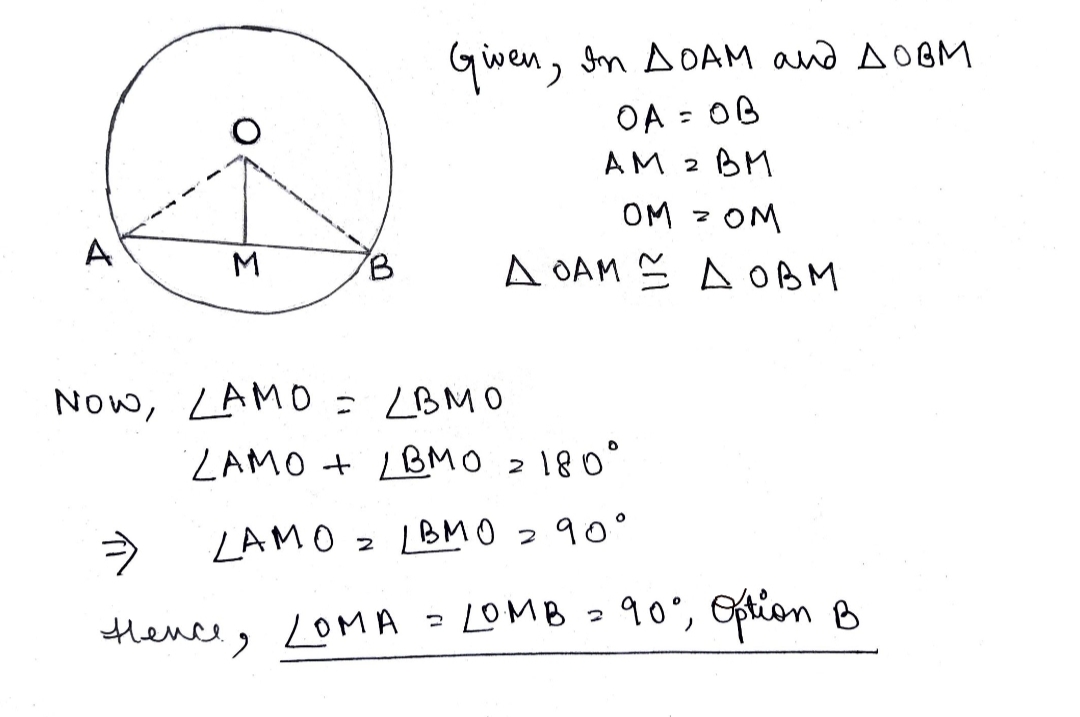 Given, In △OAM and △OBM
OA = OB
AM = BM
OM = OM
△ OAM ≅ △ OBM
O
A
M
B
Now, ∠AMO = ∠BMO
∠AMO + ∠BMO = 180°
⇒ ∠AMO = ∠BMO = 90°
Hence, ∠OMA = ∠OMB = 90°, Option B